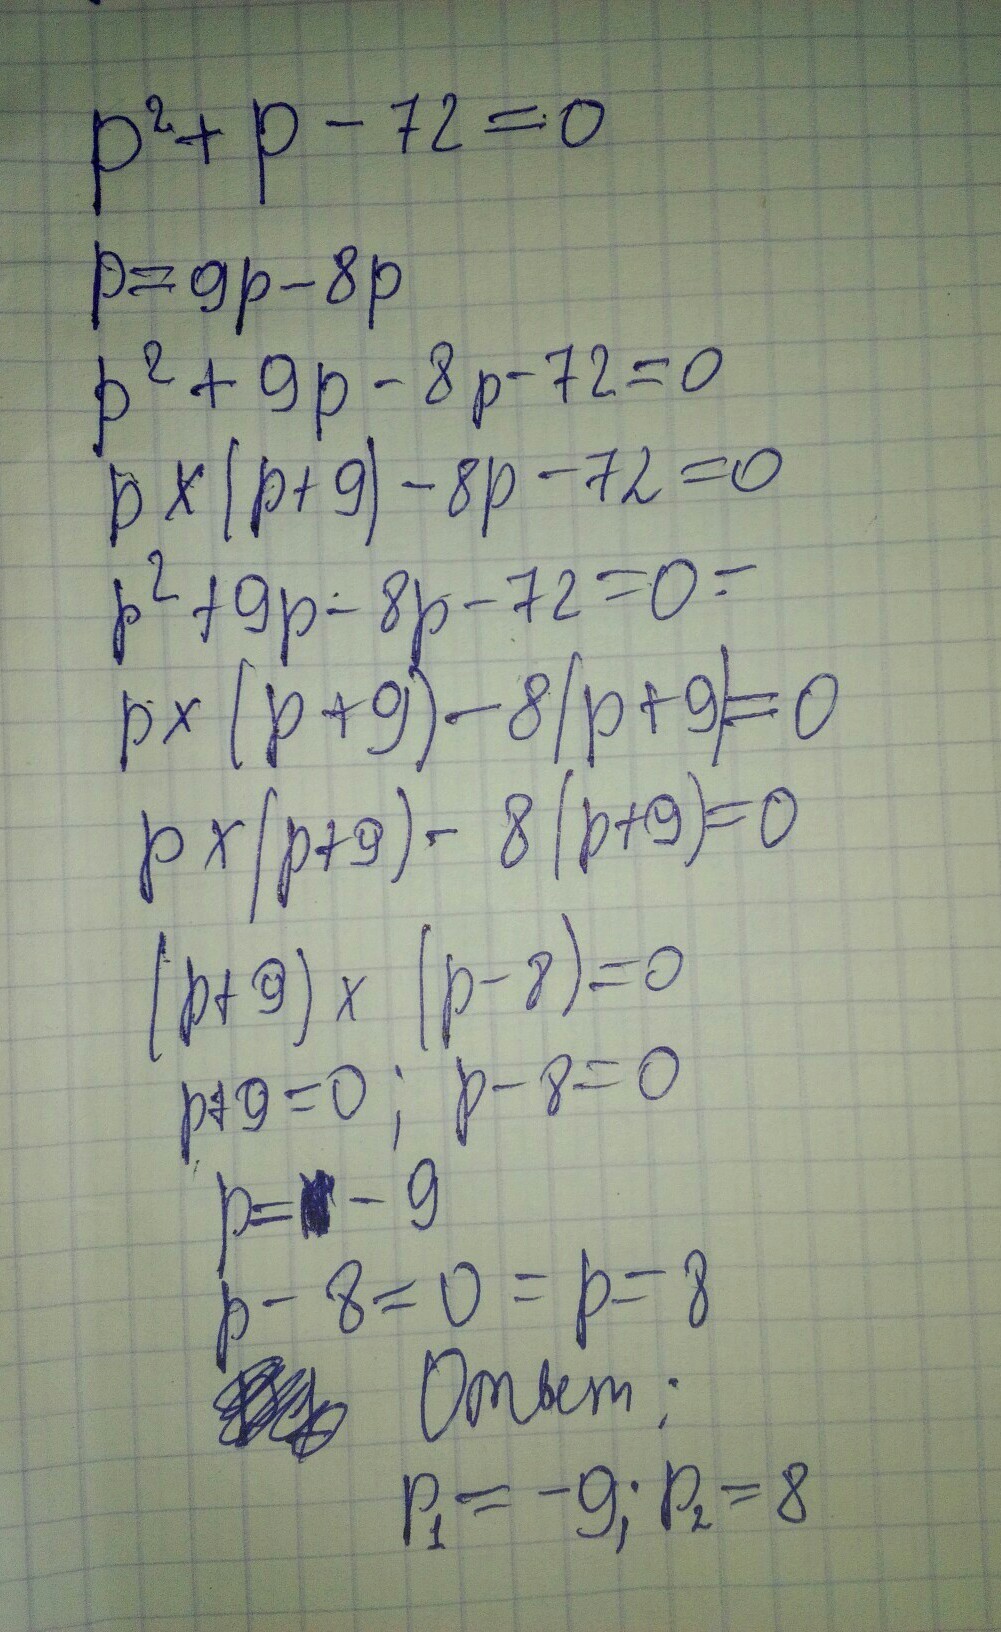 p² + p - 72 = 0
p = 9p - 8p
p² + 9p - 8p - 72 = 0
p x (p + 9) - 8p - 72 = 0
p² + 9p - 8p - 72 = 0 =
p x (p + 9) - 8(p + 9) = 0
p x (p + 9) - 8(p + 9) = 0
(p + 9) x (p - 8) = 0
p + 9 = 0 ; p - 8 = 0
p = - 9
p - 8 = 0 = p = 8
Ответ:
p₁ = -9; p₂ = 8